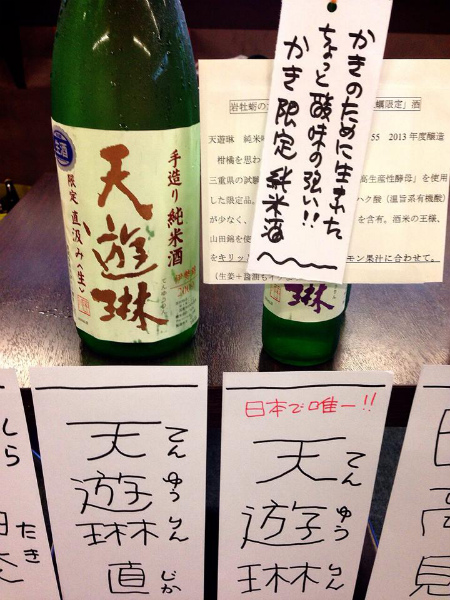 生酒
手造り純米酒
天遊琳
限定直汲み〈生〉
かきのために生まれた
ちょっと酸味の強い!!
かき限定純米酒
岩牡蛎の
限定」酒
天遊琳 純米吟
55 2013年度醸造
柑橘を思わ
三重県の試験
高生産性酵母」を使用
した限定品。
ハク酸(温旨系有機酸)
が少なく、
を含有、酒米の王様、
山田錦を使
をキリッ
モン果汁に合わせて。
(生姜+醤油もイ
琳
しら
たき
天遊琳 直
てんゆうりん じか
日本で唯一!!
天遊琳
てんゆうりん
日高見